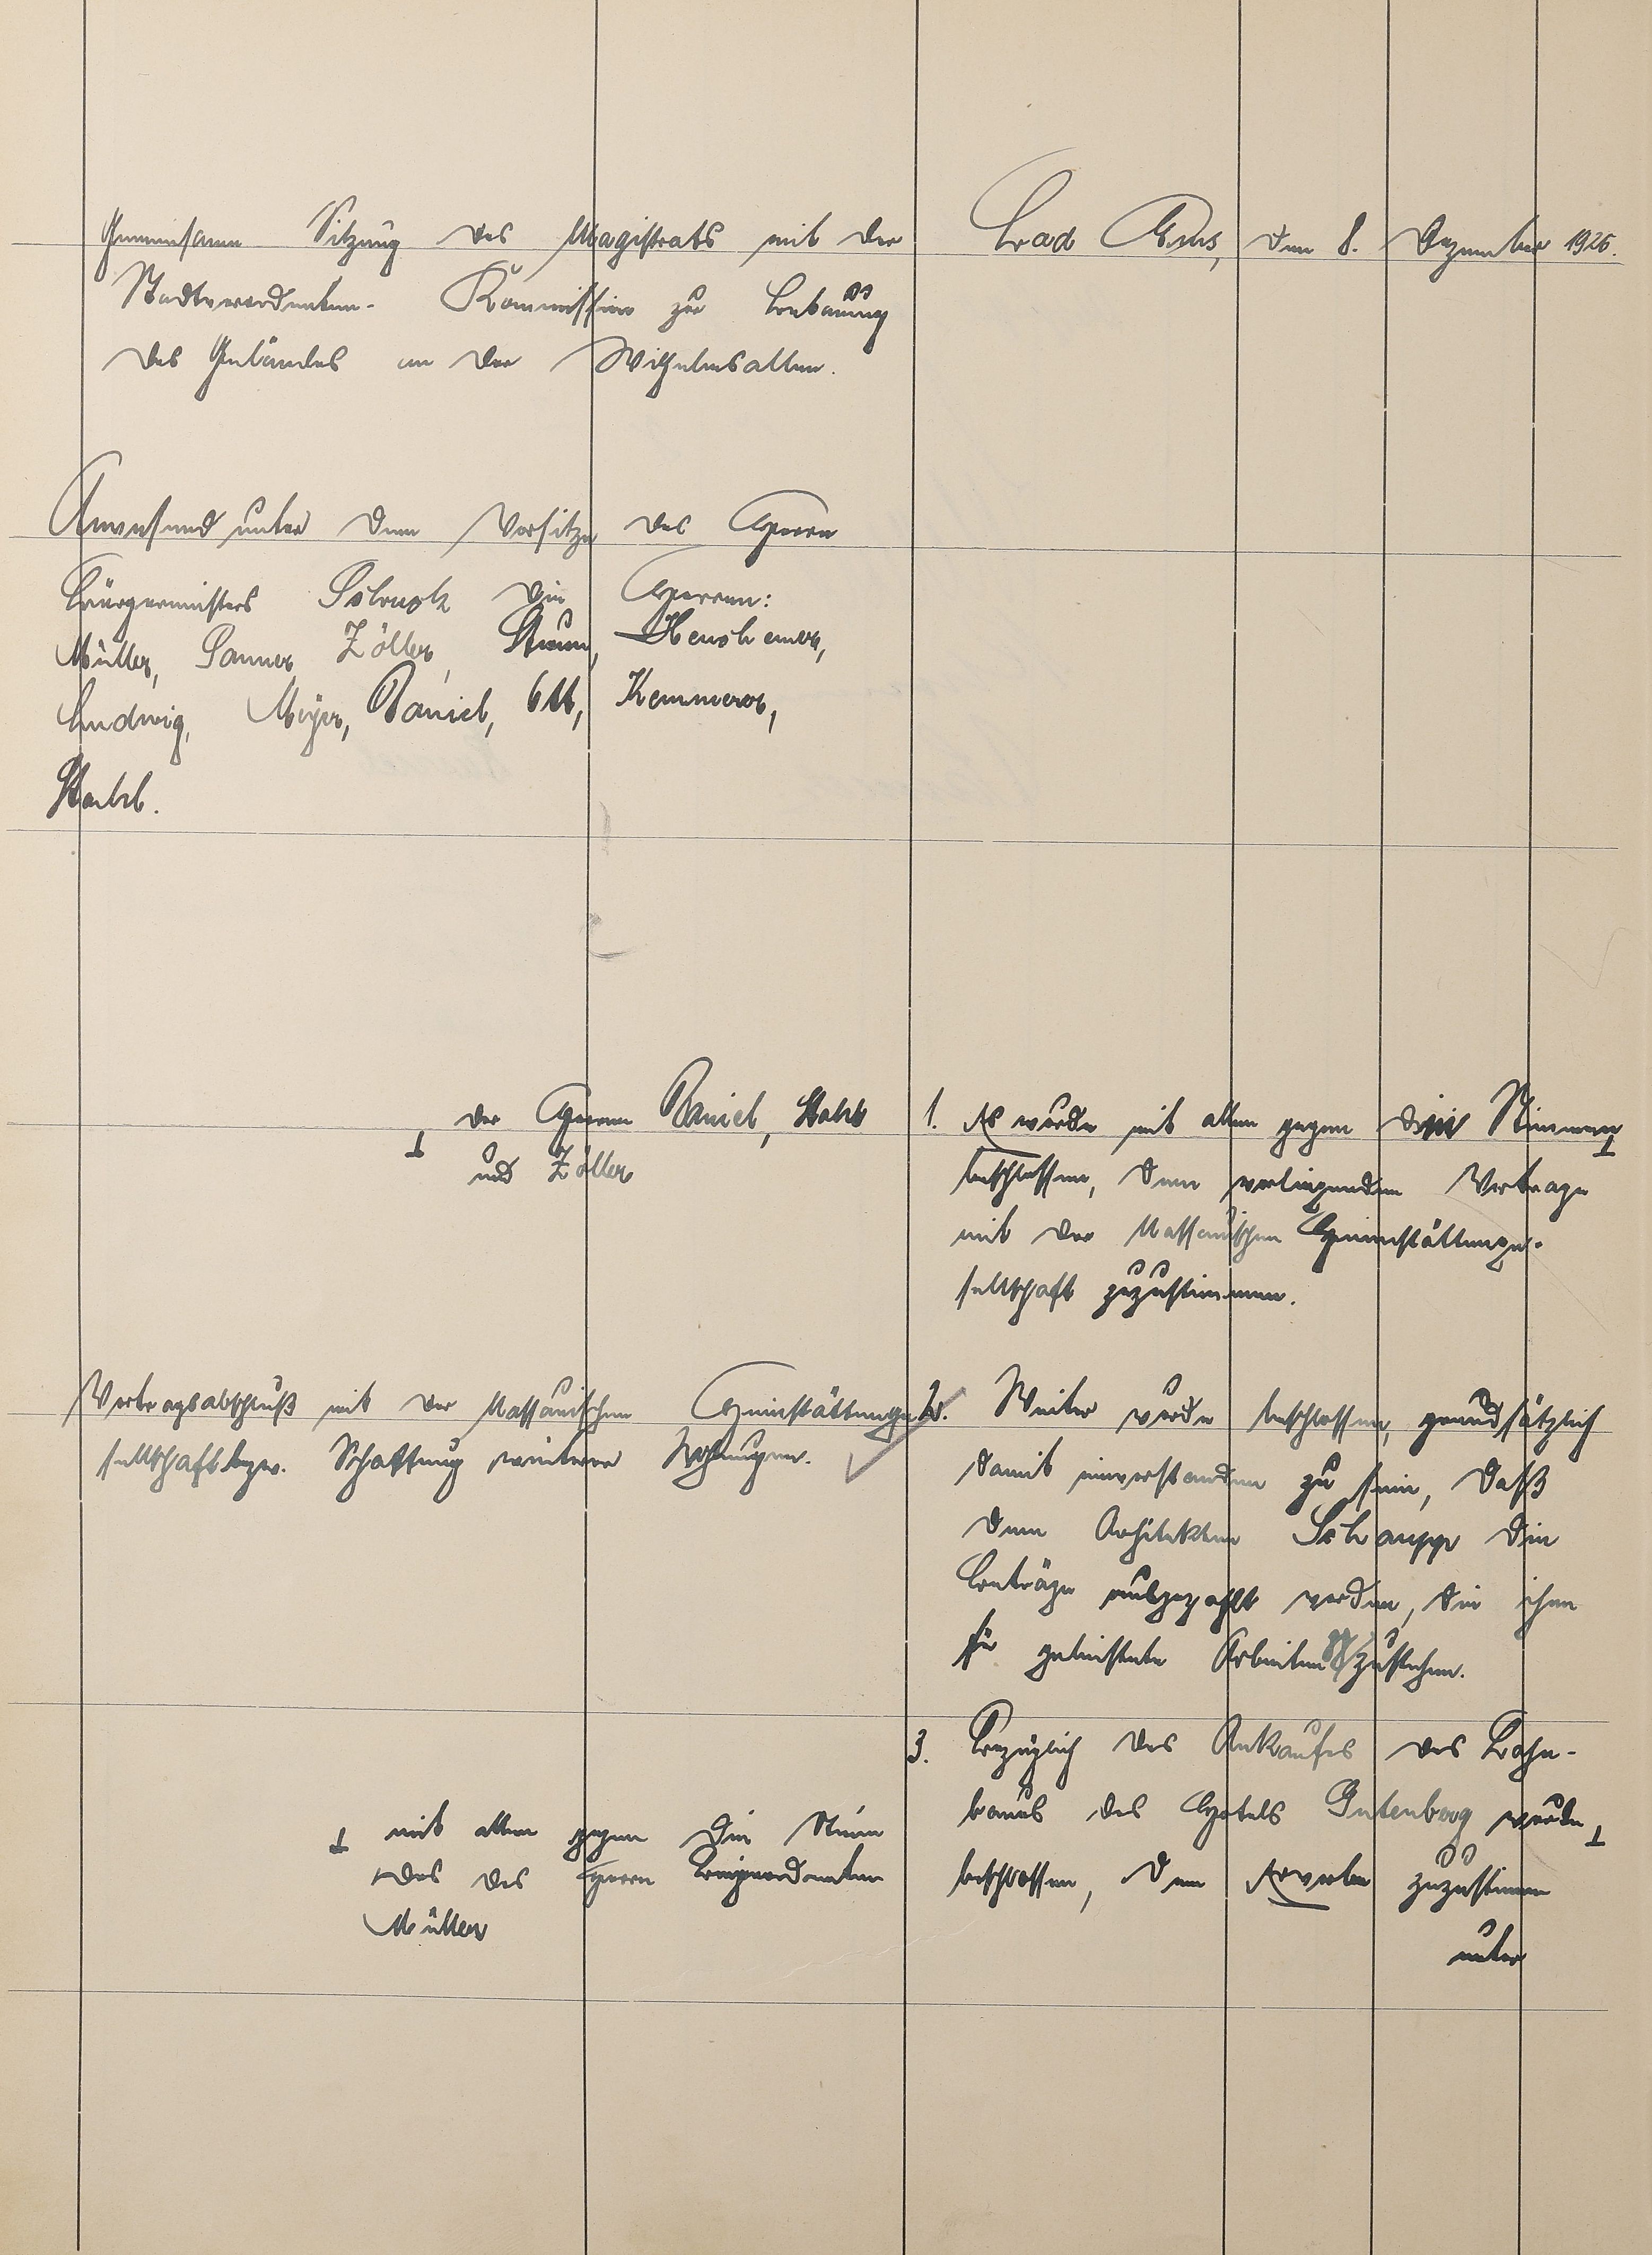 Gemeinsame Sitzung des Magistrats mit der
Stadtverordneten- Kommission zur Bebauung
des Geländes an der Wilhelmsallee.
Bad Ems, den 8. Dezember 1926.
Anwesend unter dem Vorsitze des Herrn
Bürgermeisters Schruck die Herren:
Müller, Sanner, Zöller, Stumm,
Ludwig, Meyer, Daniel, Ott, Kemmerer,
Stahl.
1. Es wurde mit allen gegen drei Stimmen ⊥
⊥ der Herren Daniel, Stahl
und Zöller
beschlossen, dem vorliegenden Vertrage
mit der Nassauischen Heimstättenge-
sellschaft zuzustimmen.
Vertragsabschluß mit der Nassauischen Heimstättenge-
sellschaft bzw. Schaffung weiterer Wohnungen.
2. Weiter wurde beschlossen, grundsätzlich
damit einverstanden zu sein, daß
dem Architekten Schaupp die
Beträge ausgezahlt werden, die ihm
für geleistete Arbeiten zustehen.
3. Bezüglich des Ankaufes des Lahn-
baues des Hotels Gutenberg wurde ⊥
⊥ mit allen gegen die Stimme
des des Herrn Beigeordneten
Müller
beschlossen, dem Erwerbe zuzustimmen
unter